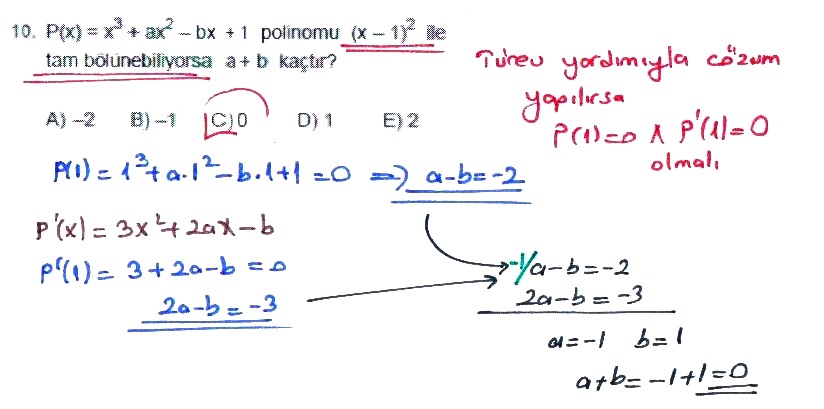 10. P(x) = x³ + ax² − bx + 1 polinomu (x − 1)² ile
tam bölünebiliyorsa a + b kaçtır?
A) −2 B) −1 C) 0 D) 1 E) 2
Türev yardımıyla çözüm
yapılırsa
P(1)=0 ∧ P'(1)=0
olmalı
P(1) = 1³+a.1²−b.1+1=0 ⇒ a−b=−2
P'(x) = 3x²+2ax−b
P'(1) = 3+2a−b=0
2a−b=−3
−1/a−b=−2
2a−b=−3
a=−1 b=1
a+b=−1+1=0